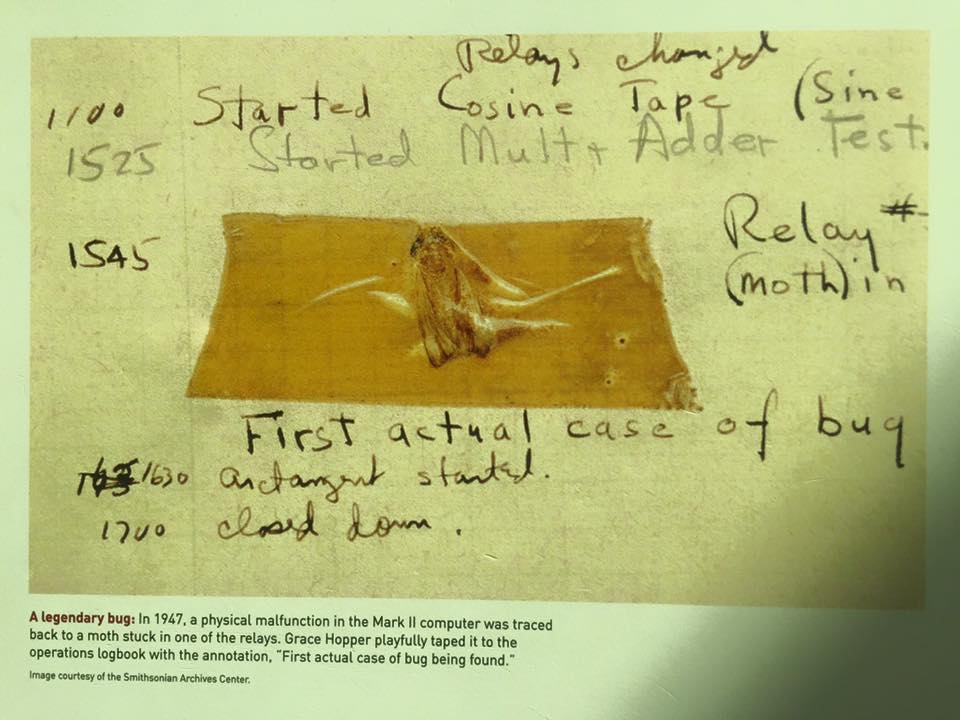 Relays changed
1100 Started Cosine Tape (Sine
1525 Started Mult + Adder Test.
1545 Relay #
(moth) in
First actual case of bug
1630 arctangent started.
1700 closed down.
A legendary bug: In 1947, a physical malfunction in the Mark II computer was traced
back to a moth stuck in one of the relays. Grace Hopper playfully taped it to the
operations logbook with the annotation, "First actual case of bug being found."
Image courtesy of the Smithsonian Archives Center.